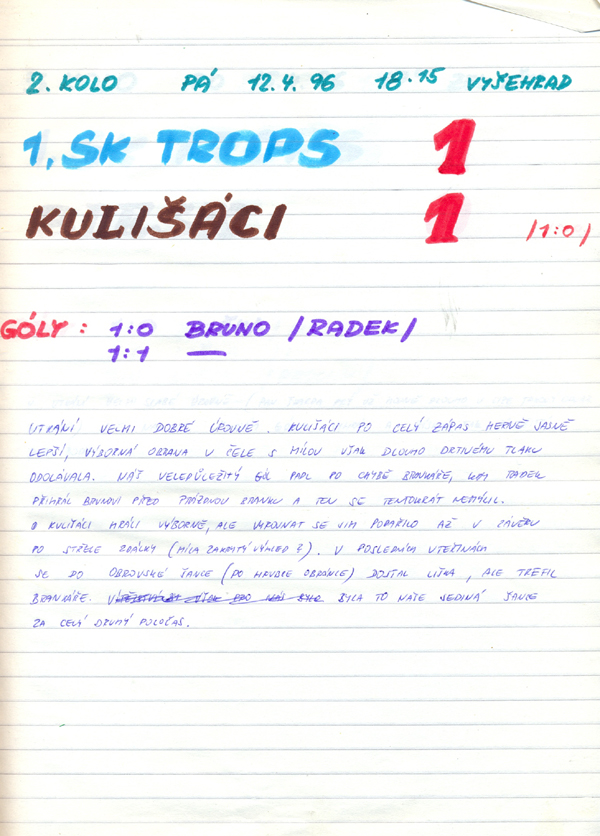 2. KOLO PÁ 12.4.96 18.15 VYŠEHRAD
1. SK TROPS 1
KULIŠÁCI 1 /1:0/
GÓLY: 1:0 BRUNO /RADEK/
1:1 —
UTKÁNÍ VELMI DOBRÉ ÚROVNĚ. KULIŠÁCI PO CELÝ ZÁPAS HERNĚ JASNĚ
LEPŠÍ, VÝBORNÁ OBRANA V ČELE S MÍLOU VŠAK DLOUHO DRTIVÉMU TLAKU
ODOLÁVALA. NÁŠ VELEDŮLEŽITÝ GÓL PADL PO CHYBĚ BRANKÁŘE, KDY RADEK
PŘIHRÁL BRUNOVI PŘED PRÁZDNOU BRANKU A TEN SE TENTOKRÁT NEMÝLIL.
KULIŠÁCI HRÁLI VÝBORNĚ, ALE VYROVNAT SE JIM PODAŘILO AŽ V ZÁVĚRU
PO STŘELE ZDÁLKY (MÍLA ZAKRYTÝ VÝHLED ?). V POSLEDNÍCH VTEŘINÁCH
SE DO OBROVSKÉ ŠANCE (PO HRUBCE OBRÁNCE) DOSTAL LIŠKA, ALE TREFIL
BRANKÁŘE. BYLA TO NAŠE JEDINÁ ŠANCE
ZA CELÝ DRUHÝ POLOČAS.